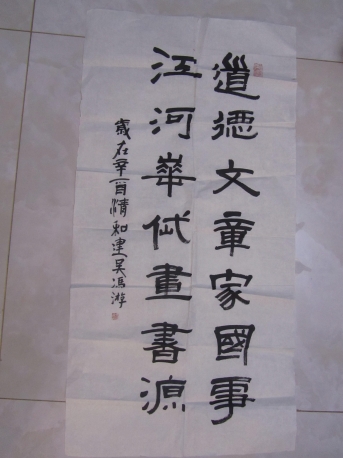 道德文章家國事
江河華代畫書源
歲在辛酉清和建吴馮游